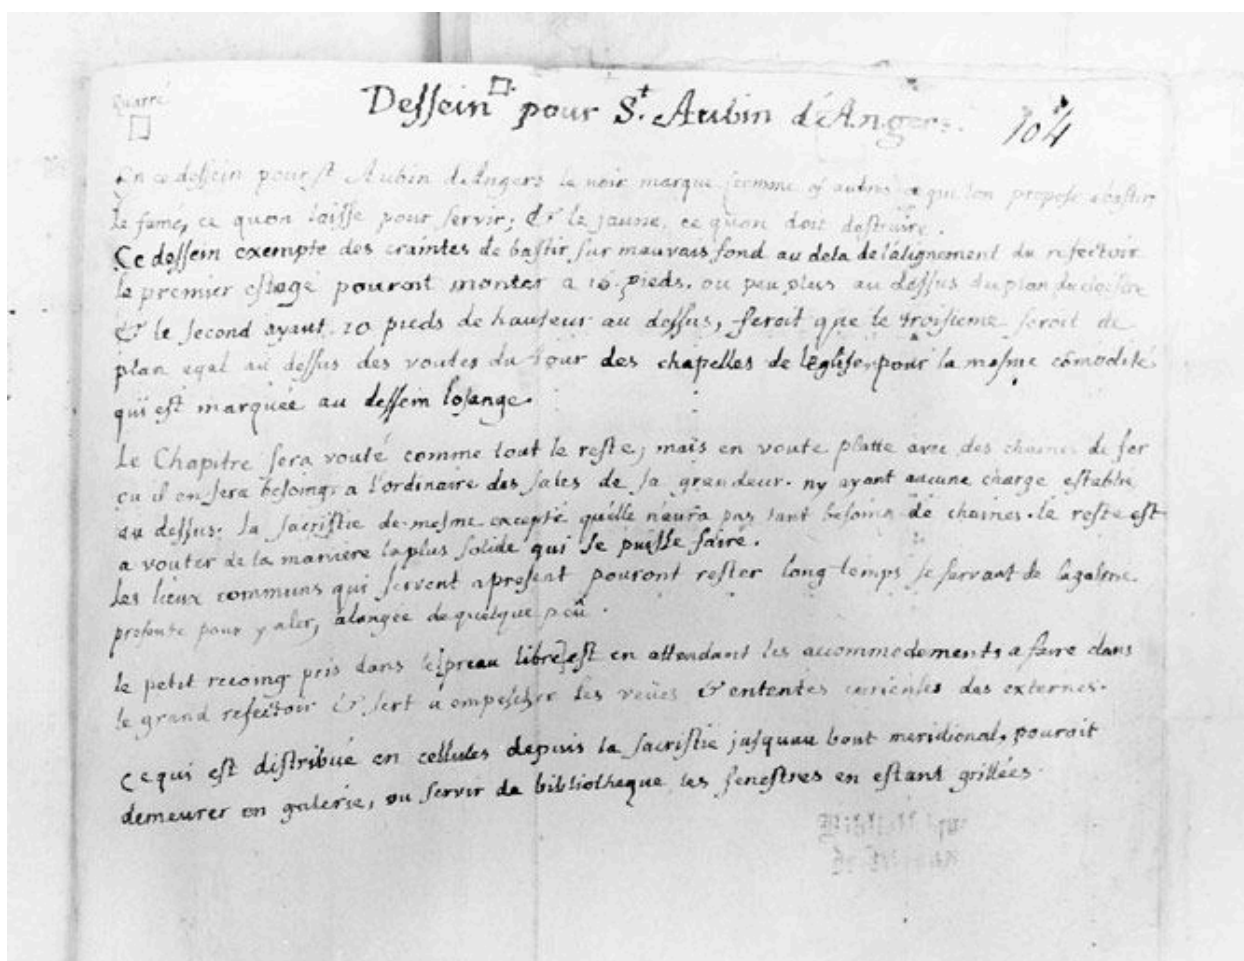 Quarré
Dessein □ pour St. Aubin d'Angers.
104
En ce dessein pour st Aubin d'Angers le noir marque comme es autres ce qui l'on propose a bastir
le fumé, ce quon laisse pour servir; & le jaune, ce quon doit destruire.
Ce dessein exempte des craintes de bastir sur mauvais fond au dela de l'alignement du refectoir
le premier estage pouroit monter a 16. pieds. ou peu plus au dessus du plan du cloistre
& le second ayant 10 pieds de hauteur au dessus, feroit que le troisieme seroit de
plan egal au dessus des voutes du tour des chapelles de l'Eglise, pour la mesme comodité
qui est marquée au dessein losange.
Le Chapitre sera vouté comme tout le reste, mais en voute platte avec des chaines de fer
ou il en sera besoing a l'ordinaire des sales de sa grandeur. ny ayant aucune charge establie
au dessus. la sacristie de mesme excepté qu'elle n'aura pas tant besoing de chaines. le reste est
a vouter de la maniere la plus solide qui se puisse faire.
Les lieux communs qui servent a present pouront rester long temps se servant de la galerie
presente pour y aler, alongée de quelque peu.
le petit recoing pris dans le [preau libre] est en attendant les accommodements a faire dans
le grand refectoir & sert a empescher les veües & ententes curieuses des externes.
ce qui est distribué en cellules depuis la sacristie jusquau bout meridional, pouroit
demeurer en galerie, ou servir de bibliotheque les fenestres en estant grillées.